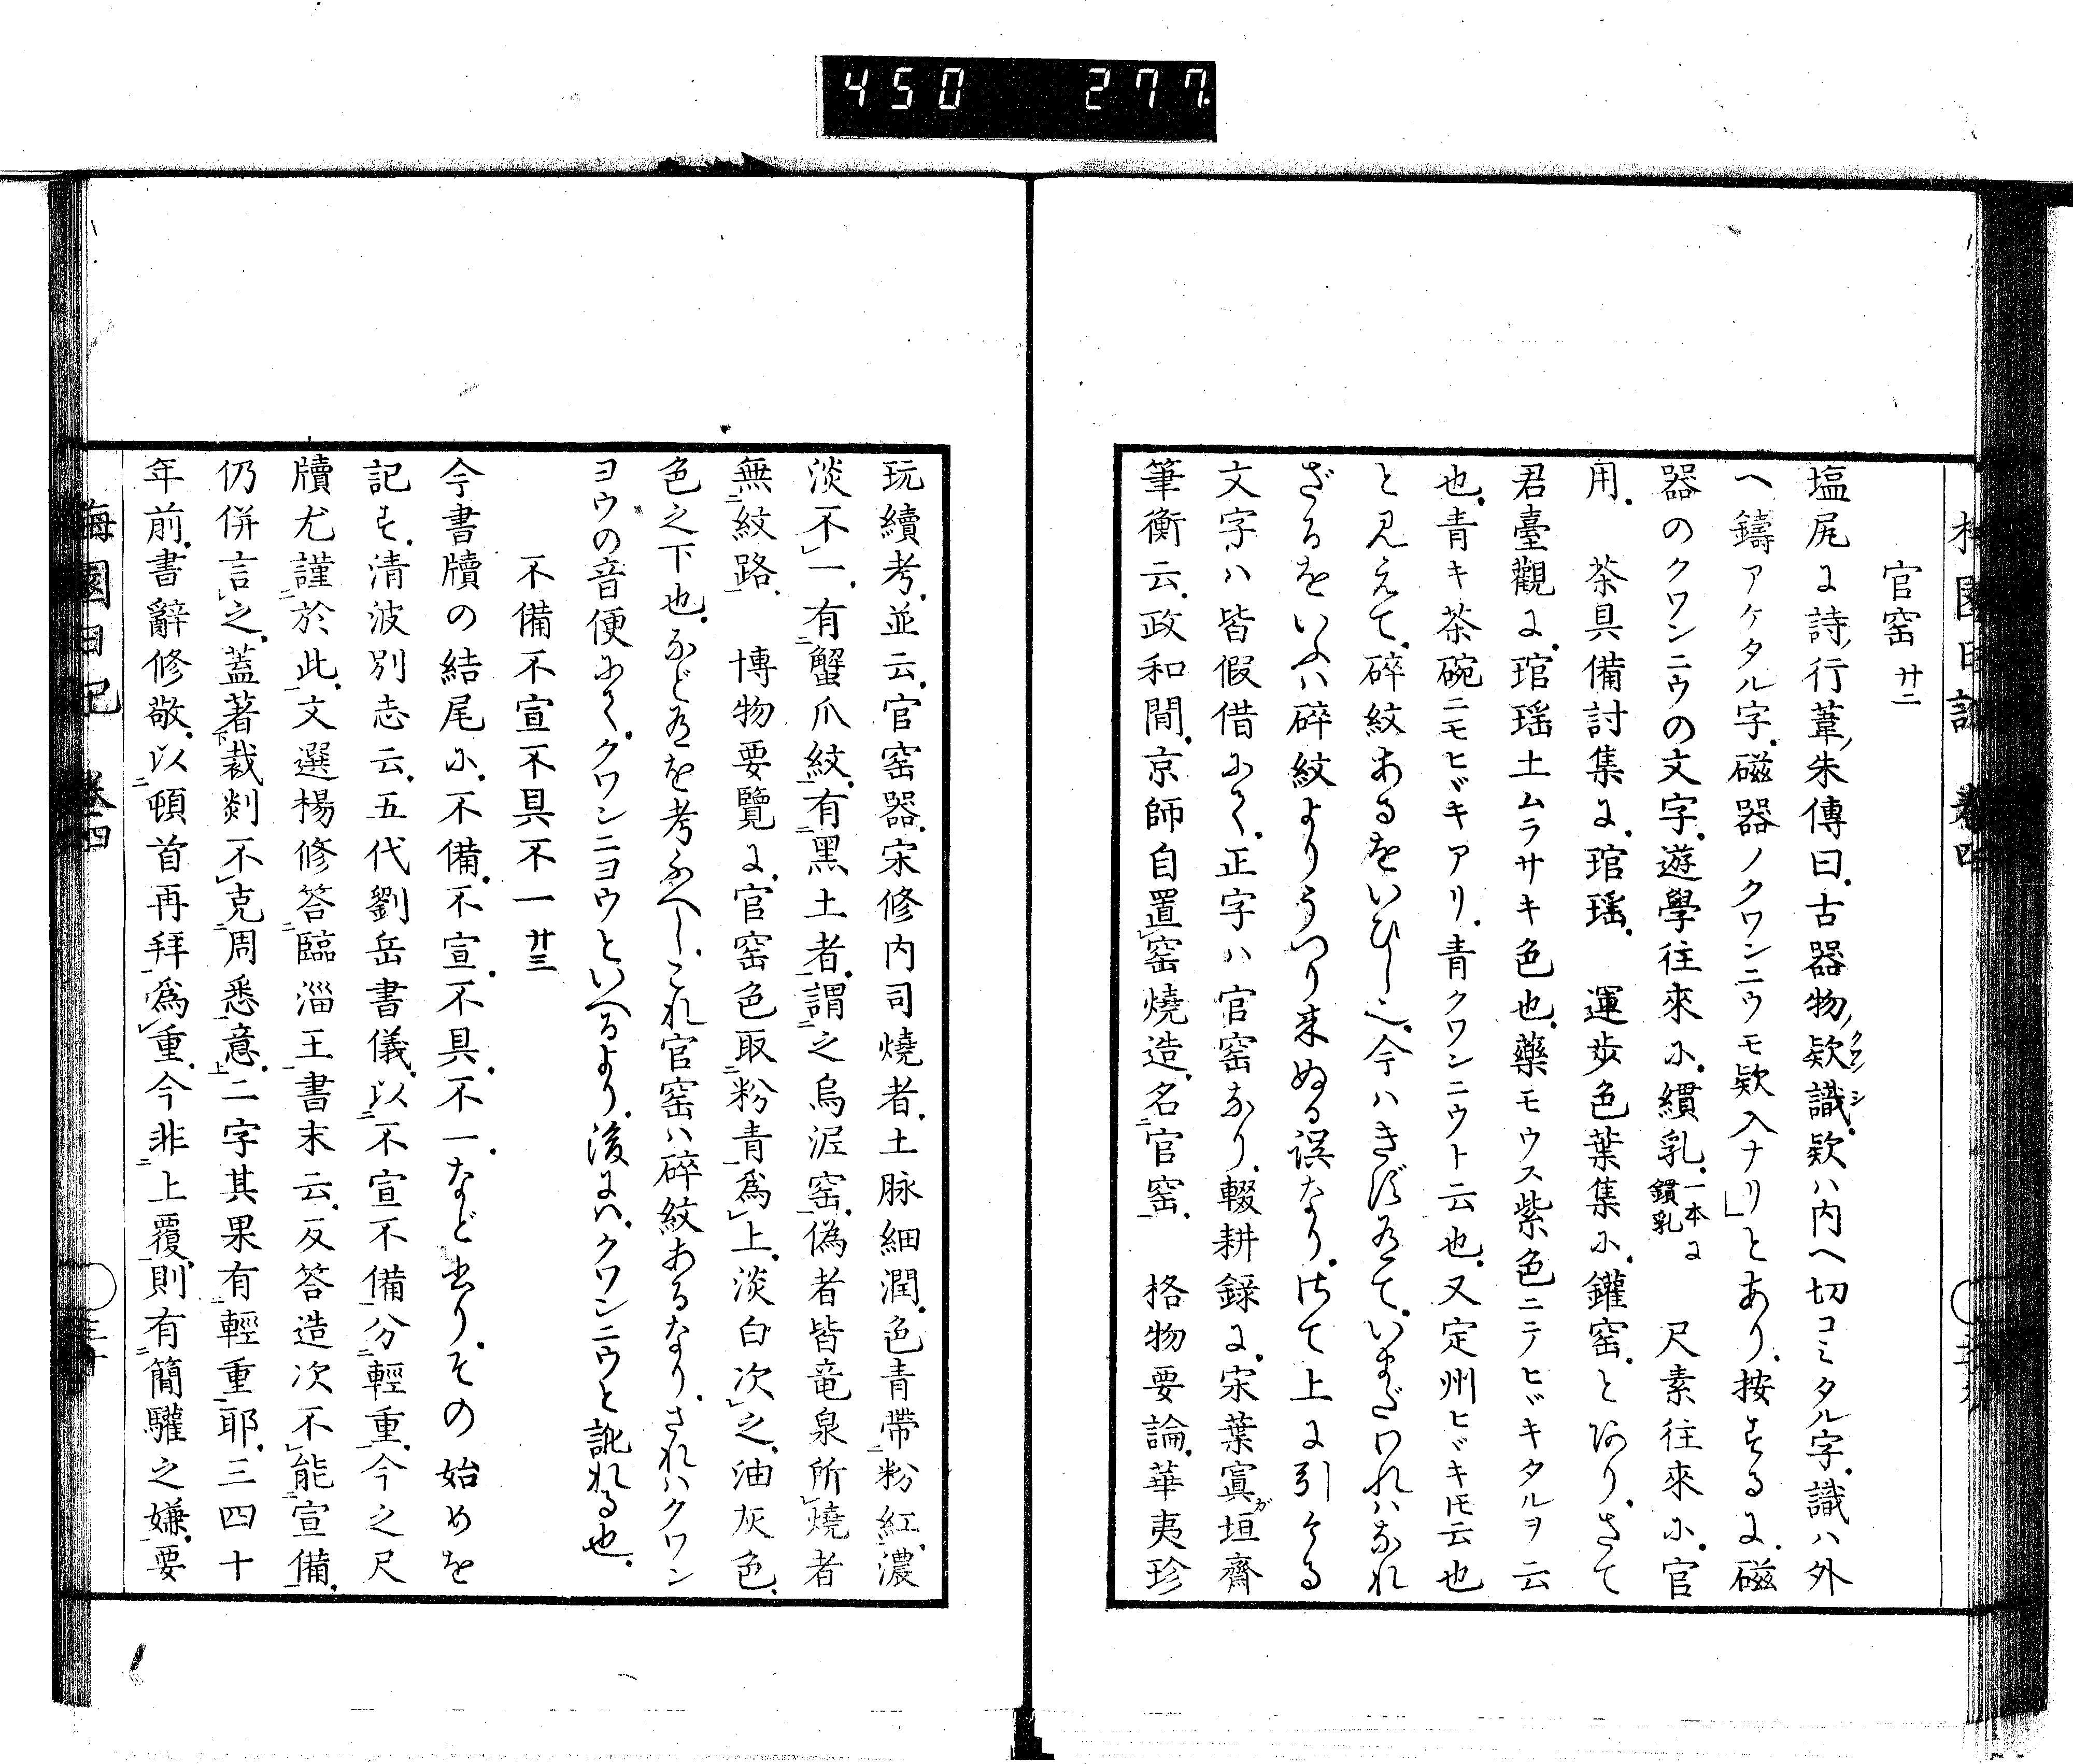 450 277.
官窑 廿二
塩尻に詩行葦朱傳曰古器物欵識欵ハ内ヘ切コミタル字識ハ外
ヘ鑄アケタル字磁器ノクワンニウモ欵入ナリ」とあり按ずるに磁
器のクワンニウの文字遊學往來に縨乳一本に鏆乳 尺素往來に官
用 茶具備討集に琯瑶 運歩色葉集に鑵窑とあり さて
君臺觀に琯瑶土ムラサキ色也藥モウス紫色ニテヒヾキタルヲ云
也青キ茶碗ニモヒヾキアリ青クワンニウト云也又定州ヒヾキ𪜈云也
と見えて碎紋あるをいひし也今ハきず有ていまだわれハなれ
ざるをいふハ碎紋よりうつり来ぬる誤なり 扨て上に引ける
文字ハ皆假借にて正字ハ官窑なり輟耕録に宋葉寘が垣齋
筆衡云政和間京師自置窑燒造名官窑 格物要論華夷珍
玩續考並云官窑器宋修内司燒者土脉細潤色青帶粉紅濃
淡不一有蟹爪紋有黑土者謂之烏泥窑偽者皆竜泉所燒者
無紋路 博物要覽に官窑色取粉青爲上淡白次之油灰色
色之下也など有を考ふべしこれ官窑ハ碎紋あるなりされハクワン
ヨウの音便にてクワンニヨウといへるより後にハクワンニウと訛れる也
不備不宣不具不一 廿三
今書牘の結尾に不備不宣不具不一など書りその始めを
記さず清波別志云五代劉岳書儀以不宣不備分輕重今之尺
牘尤謹於此文選楊修答臨淄王書末云反答造次不能宣備
仍併言之蓋著裁剡不克周悉意二字其果有輕重耶三四十
年前書辭修敬以頓首再拜爲重今非上覆則有簡驩之嫌要
梅園日記 卷四